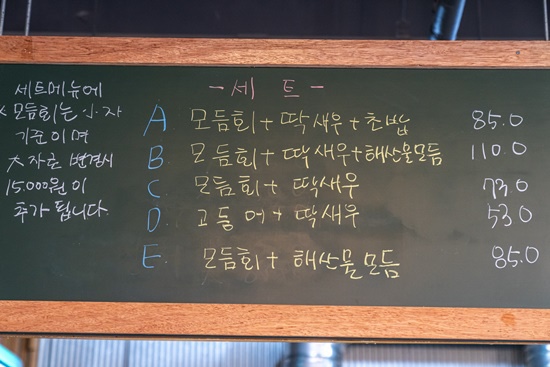 세트메뉴에
* 모듬회는 小자
기준이며
大자로 변경시
15.000원이
추가 됩니다.
- 세 트 -
A 모듬회 + 딱새우 + 초밥 85.0
B. 모듬회 + 딱새우 + 해산물모듬 110.0
C. 모듬회 + 딱새우 73.0
D. 고등어 + 딱새우 53.0
E. 모듬회 + 해산물모듬 85.0